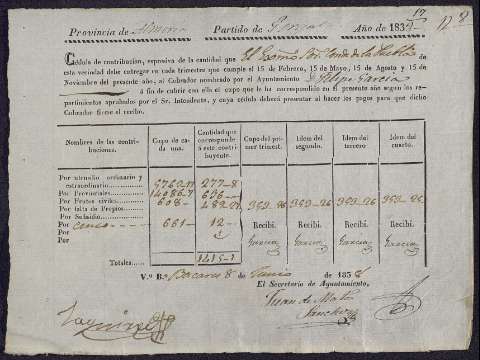 17
Provincia de Almeria Partido de Año de 183
Cédula de contribucion, espresiva de la cantidad que El Exsmo Sor. Conde de la Puebla
de esta vecindad debe entregar en cada trimestre que cumple el 15 de Febrero, 15 de Mayo, 15 de Agosto y 15 de
Noviembre del presente año, al Cobrador nombrado por el Ayuntamiento D. Felipe Garcia
á fin de cubrir con ella el cupo que le ha correspondido en el presente año segun los re-
partimientos aprobados por el Sr. Intendente, y cuya cédula deberá presentar al hacer los pagos para que dicho
Cobrador tiene el recibo.
Nombres de las contri-
buciones. Cupo de ca-
da una. Cantidad que
corresponde
á este contri-
buyente. Cupo del pri-
mer trimest. Idem del
segundo. Idem del
tercero Idem del
cuarto.
Por utensilio ordinario y
estraordinario 277-8
Por Provinciales 636
Por Frutos civiles 608
Por falta de Propios
Por Subsidio
Por censo 661 12 Recibí. Recibí. Recibí. Recibí.
Por
Por Garcia Garcia Garcia Garcia
Totales 1415-1
V.º B.º Bacares 8 de Junio de 1838
El Secretario de Ayuntamiento,
Juan de Mata
Sanchez